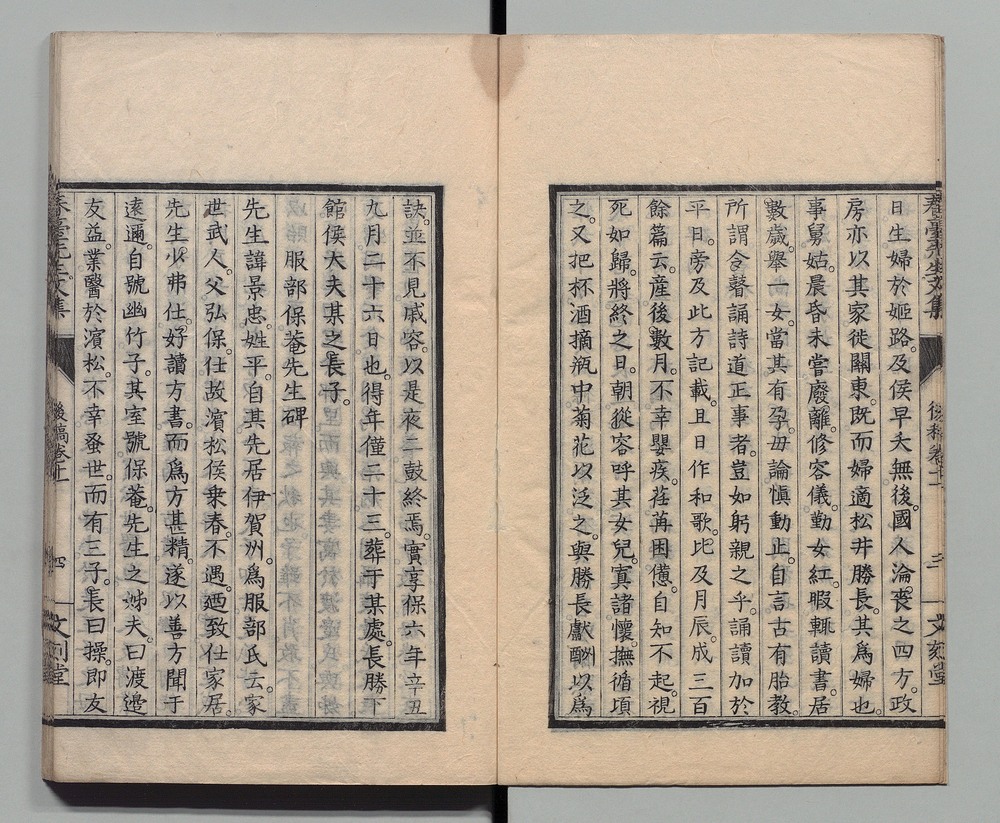 日生婦於姬路。及侯早夭無後。國人淪喪之四方。政
房亦以其家徙關東。既而婦適松井勝長。其爲婦也。
事舅姑。晨昏未嘗廢離。修容儀。勤女紅。暇輒讀書。居
數歲。舉一女。當其有孕。毋論愼動止。自言古有胎教。
所謂令瞽誦詩道正事者。豈如躬親之乎。誦讀加於
平日。旁及此方記載。且日作和歌。比及月辰。成三百
餘篇云。産後數月。不幸嬰疾。荏苒困憊。自知不起。視
死如歸。將終之日。朝從容呼其女兒。寘諸懷。撫循頃
之。又把杯酒摘瓶中菊花以泛之。與勝長獻酬以爲
訣。並不見戚容。以是夜二鼓終焉。實享保六年辛丑
九月二十六日也。得年僅二十三。葬于某處。長勝下
館侯大夫某之長子。
服部保菴先生碑
先生諱景忠。姓平。自其先居伊賀州。爲服部氏云。家
世武人。父弘保。仕故濱松侯乘春。不遇。廼致仕家居。
先生少弗仕。好讀方書。而爲方其精。遂以善方聞于
遠邇。自號幽竹子。其室號保菴。先生之姊夫。曰渡邉
友益。業醫於濱松。不幸蚤世。而有三子。長曰操。即友
春臺先生文集
後稿卷十一
三
文刻堂
春臺先生文集
後稿卷十一
四
文刻堂